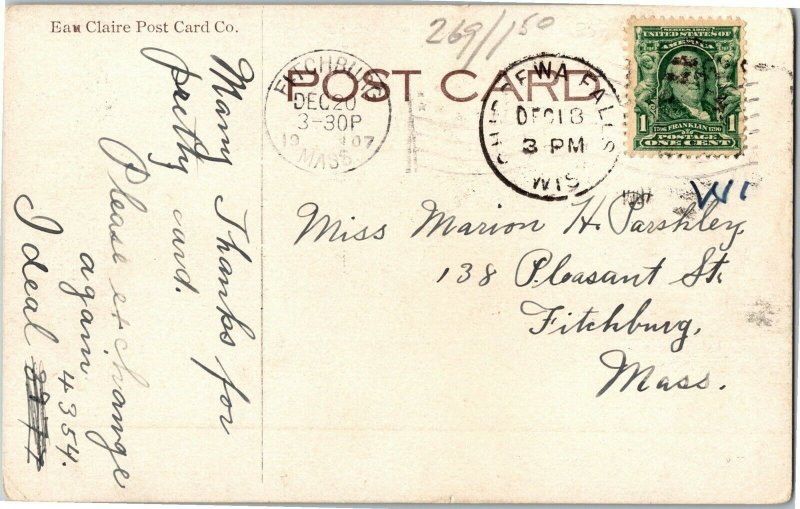 Eau Claire Post Card Co.
269/1.50
POST CARD
FITCHBURG
DEC20
3-30P
19 07
MASS.
CHIPPEWA FALLS
DEC18
3 PM
WIS
SERIES 1902
UNITED STATES OF
AMERICA
1706 FRANKLIN 1790
1 POSTAGE 1
ONE CENT
Many Thanks for
pretty card.
Please exchange
again 4354.
Ideal
Miss Marion H. Parshley
138 Pleasant St.
Fitchburg,
Mass.